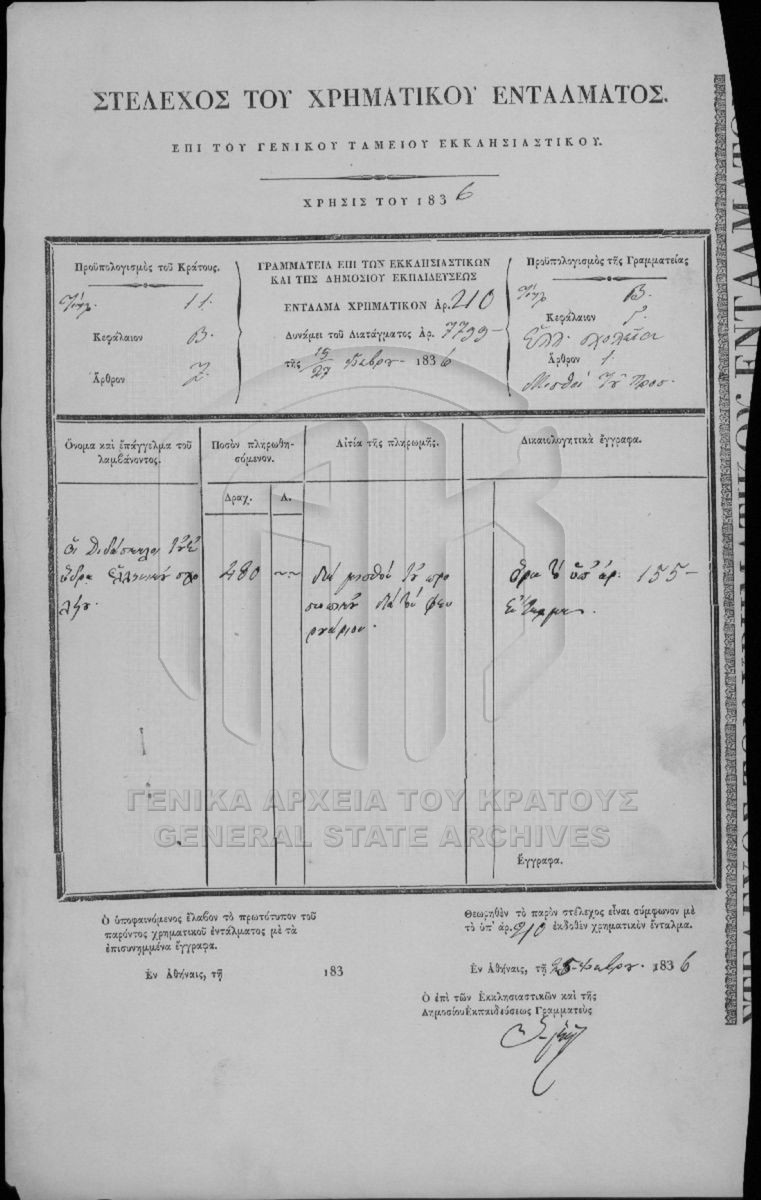 ΣΤΕΛΕΧΟΣ ΤΟΥ ΧΡΗΜΑΤΙΚΟΥ ΕΝΤΑΛΜΑΤΟΣ.
ΕΠΙ ΤΟΥ ΓΕΝΙΚΟΥ ΤΑΜΕΙΟΥ ΕΚΚΛΗΣΙΑΣΤΙΚΟΥ.
ΧΡΗΣΙΣ ΤΟΥ 1836
Προϋπολογισμὸς τοῦ Κράτους.
Τίτλ. 11.
Κεφάλαιον Β.
Ἄρθρον 2.
ΓΡΑΜΜΑΤΕΙΑ ΕΠΙ ΤΩΝ ΕΚΚΛΗΣΙΑΣΤΙΚΩΝ
ΚΑΙ ΤΗΣ ΔΗΜΟΣΙΟΥ ΕΚΠΑΙΔΕΥΣΕΩΣ
ΕΝΤΑΛΜΑ ΧΡΗΜΑΤΙΚΟΝ Ἀρ. 210
Δυνάμει τοῦ Διατάγματος Ἀρ. 7799-
τῆς 15/27 Φεβρου 1836
Προϋπολογισμὸς τῆς Γραμματείας
Τίτλ Β.
Κεφάλαιον Γ.
Ἑλλ. σχολεῖα
Ἄρθρον 1.
Μισθοὶ τοῦ Προσ.
Ὄνομα καὶ ἐπάγγελμα τοῦ
λαμβάνοντος.
Ποσὸν πληρωθη-
σόμενον.
Αἰτία τῆς πληρωμῆς.
Δικαιολογητικὰ ἔγγραφα.
Δραχ.
Λ.
οἱ Διδάσκαλοι τοῦ ἐν
Ὕδρα Ἑλληνικοῦ σχο
λείου.
480
διὰ μισθοὺς τοῦ προ
σωπικοῦ διὰ τὸν Φεβ
ρουάριον.
ὅρα τὸ ὑπ' ἀρ. 155-
ἔνταλμα.
Ἔγγραφα.
Ὁ ὑποφαινόμενος ἔλαβον τὸ πρωτότυπον τοῦ
παρόντος χρηματικοῦ ἐντάλματος μὲ τὰ
ἐπισυνημμένα ἔγγραφα.
Ἐν Ἀθήναις, τῇ 183
Θεωρηθὲν τὸ παρὸν στέλεχος εἶναι σύμφωνον μὲ
τὸ ὑπ' ἀρ. 210 ἐκδοθὲν χρηματικὸν ἔνταλμα.
Ἐν Ἀθήναις, τῇ 25 Φεβρου. 1836
Ὁ ἐπὶ τῶν Ἐκκλησιαστικῶν καὶ τῆς
Δημοσίου Ἐκπαιδεύσεως Γραμματεὺς
ΓΕΝΙΚΑ ΑΡΧΕΙΑ ΤΟΥ ΚΡΑΤΟΥΣ
GENERAL STATE ARCHIVES
ΣΤΕΛΕΧΟΣ ΤΟΥ ΧΡΗΜΑΤΙΚΟΥ ΕΝΤΑΛΜΑΤΟΣ